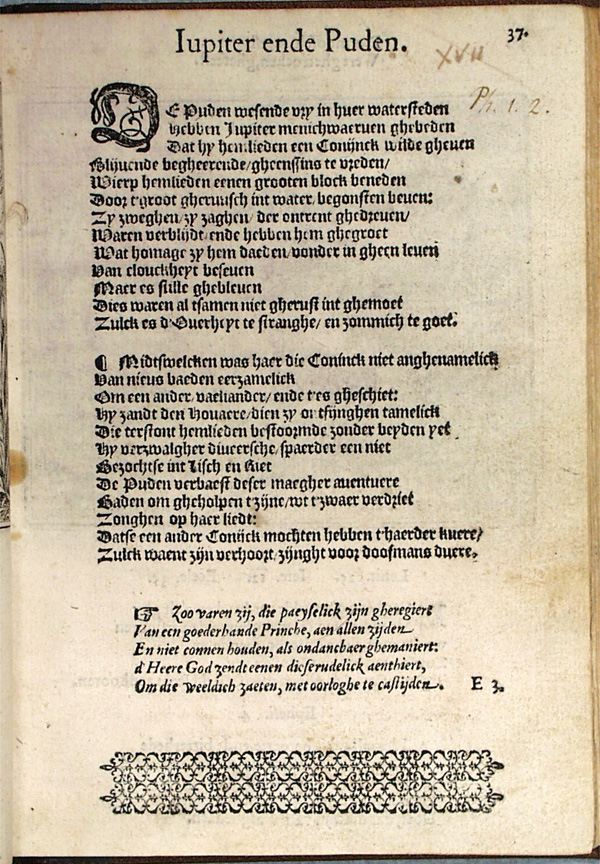 Iupiter ende Puden.
37.
XVII
Ph. 1. 2.
DE Puden wesende vry in huer watersteden
Hebben Jupiter menichwaeruen ghebeden
Dat hy hemlieden een Conijnck wilde gheuen
Blijuende begheerende/gheenssins te vreden/
Wierp hemlieden eenen grooten block beneden
Door t'groot gheruusch int water, begonsten beuen:
Zy zweghen/zy zaghen/der ontrent ghedreuen/
Waren verblijdt/ende hebben hem ghegroet
Wat homage zy hem daeden/vonder in gheen leuen
Van clouckheyt beseuen
Maer es stille ghebleuen
Dies waren al tsamen niet gherust int ghemoet
Zulck es d'Ouerheyt te stranghe/en zommich te goet.
¶ Midtswelcken was haer die Coninck niet anghenamelick
Van nieus baeden eerzamelick
Om een ander, vaeliander/ende t'es gheschiet:
Hy zandt den Houaere/dien zy ontfijnghen tamelick
Die terstont hemlieden bestoormde zonder beyden yet
Hy verzwalgher diueersche/spaerder een niet
Gezochtse int Lisch en Riet
De Puden verbaest deser maegher auentuere
Baden om gheholpen t'zijne/wt t'zwaer verdriet
Zonghen op haer liedt:
Datse een ander Conijck mochten hebben t'haerder kuere/
Zulck waent zijn verhoort/zijnght voor doofmans duere.
☞ Zoo varen zij, die paeyselick zijn gheregiert
Van een goederhande Prinche, aen allen zijden
En niet connen houden, als ondancbaer ghemaniert:
d'Heere God zendt eenen die serudelick aenthiert,
Om die weeldich zaeten, met oorloghe te castijden.
E 3.